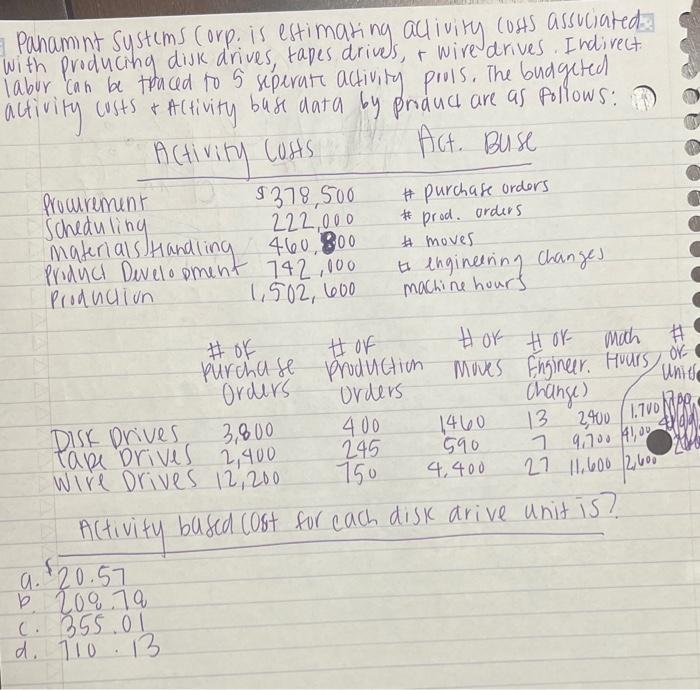 Panamint Systems Corp. is estimating activity costs associated
with producing disk drives, tapes drives, + wire drives. Indirect
labor can be traced to 5 seperate activity pools. The budgeted
activity costs + Activity base data by product are as follows:
Activity Costs Act. Base
Procurement $378,500 # purchase orders
Scheduling 222,000 # prod. orders
Materials Handling 460,800 # moves
Product Development 742,000 engineering changes
Production 1,502,600 machine hours
# of # of # of # of Mach #
Purchase Production Moves Engineer. Hours of
Orders Orders Change) Units
Disk Drives 3,800 400 1460 13 2,400 1.700
Tape Drives 2,400 245 590 7 9,700
Wire Drives 12,200 750 4,400 27 11,600 2,600
Activity based cost for each disk drive unit is?
a. $20.57
b. 208.78
c. 355.01
d. 710.13